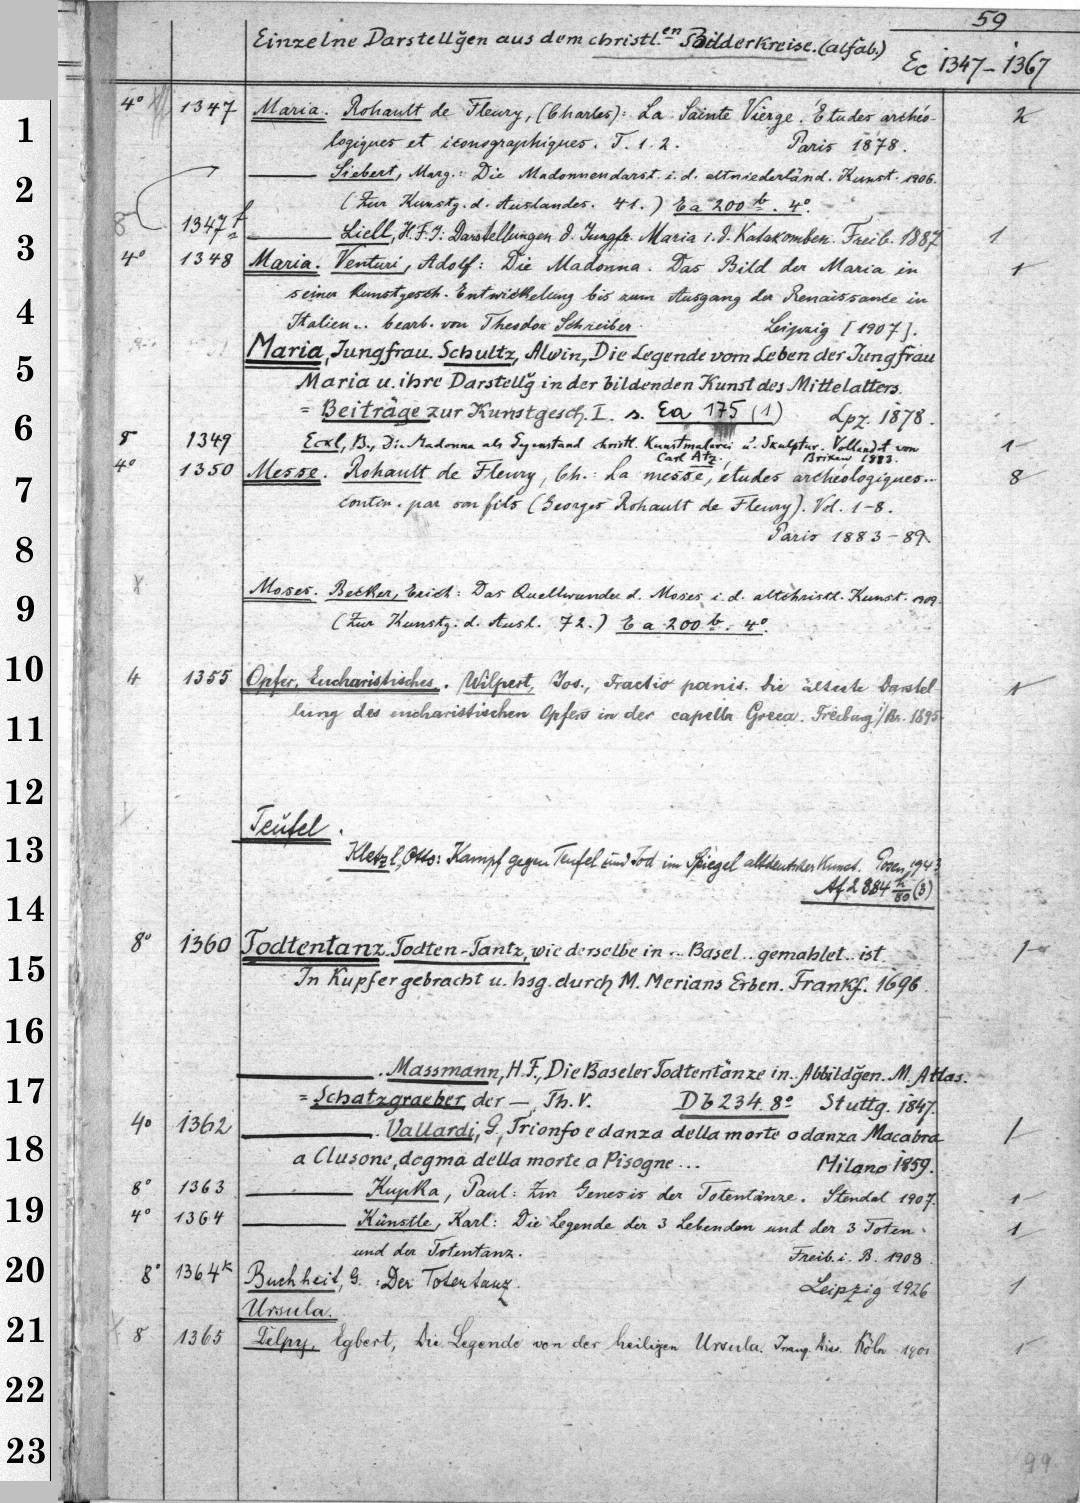 59
Einzelne Darstellg̃en aus dem christl.en Bilderkreise. (alfab.)
Ec 1347–1367
4° 1347 Maria. Rohault de Fleury, (Charles): La Sainte Vierge. Etudes archéo- 2
1
logiques et iconographiques. T. 1. 2. Paris 1878.
2
——— Siebert, Marg.: Die Madonnendarst. i. d. altniederländ. Kunst. 1906.
(Zur Kunstg. d. Auslandes. 41.) Ea 200 b. 4°.
8 1347 f ——— Liell, H.F.J: Darstellungen d. Jungfr. Maria i. d. Katakomben. Freib. 1887 1
3
4° 1348 Maria. Venturi, Adolf: Die Madonna. Das Bild der Maria in 1
seiner kunstgesch. Entwickelung bis zum Ausgang der Renaissance in
4
Italien.. bearb. von Theodor Schreiber. Leipzig [1907].
Maria, Jungfrau. Schultz, Alwin, Die Legende vom Leben der Jungfrau
5
Maria u. ihre Darstellg̃ in der bildenden Kunst des Mittelalters.
= Beiträge zur Kunstgesch. I. s. Ea 175 (1) Lpz. 1878.
6
8 1349 Eckl, B., Die Madonna als Gegenstand christl. Kunstmalerei u. Skulptur. Vollendet von 1
Carl Atz. Brixen 1883.
4° 1350 Messe. Rohault de Fleury, Ch.: La messe, études archéologiques... 8
7
contin. par son fils (Georges Rohault de Fleury). Vol. 1–8.
Paris 1883–89
8
Moses. Becker, Erich: Das Quellwunder d. Moses i. d. altchristl. Kunst. 1909.
9
(Zur Kunstg. d. Ausl. 72.) Ea 200 b. 4°.
10
4 1355 Opfer, Eucharistisches. Wilpert, Jos., Fractio panis. Die älteste Darstel- 1
lung des eucharistischen Opfers in der capella Greca. Freiburg i/Br. 1895
11
12
Teufel.
13
Kletzl, Otto: Kampf gegen Teufel und Tod im Spiegel altdeutscher Kunst. Posen, 1943
Af 2884 n/80 (3)
14
8° 1360 Todtentanz. Todten-Tantz, wie derselbe in ... Basel .. gemahlet .. ist. 1
15
In Kupfer gebracht u. hsg. durch M. Merians Erben. Frankf. 1696.
16
——— . Massmann, H.F., Die Baseler Todtentänze in .. Abbildg̃en. M. Atlas.
17
= Schatzgraeber, der —, Th. V. Db 234. 8° Stuttg. 1847.
4° 1362 ——— . Vallardi, G., Trionfo e danza della morte o danza Macabra 1
18
a Clusone, dogma della morte a Pisogne ... Milano 1859.
8° 1363 ——— Kupka, Paul: Zur Genesis der Totentänze. Stendal 1907. 1
19
4° 1364 ——— Künstle, Karl: Die Legende der 3 Lebenden und der 3 Toten 1
und der Totentanz. Freib. i. B. 1908.
20
8° 1364 k Buchheit, G. : Der Totentanz. Leipzig 1926 1
Ursula.
21
8 1365 Delpy, Egbert, Die Legende von der heiligen Ursula. Inaug. Diss. Köln 1901 1
22
23
99